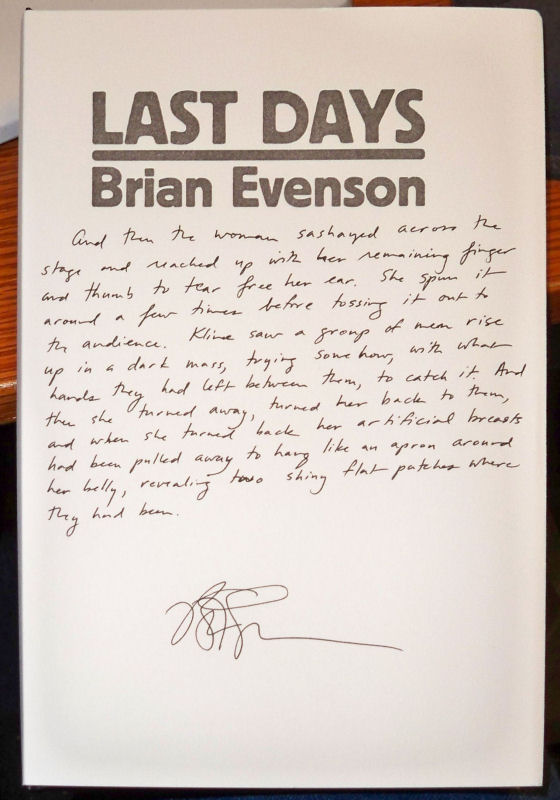 LAST DAYS
Brian Evenson
And then the woman sashayed across the
stage and reached up with her remaining finger
and thumb to tear free her ear. She spun it
around a few times before tossing it out to
the audience. Kline saw a group of men rise
up in a dark mass, trying somehow, with what
hands they had left between them, to catch it. And
then she turned away, turned her back to them,
and when she turned back her artificial breasts
had been pulled away to hang like an apron around
her belly, revealing two shiny flat patches where
they had been.